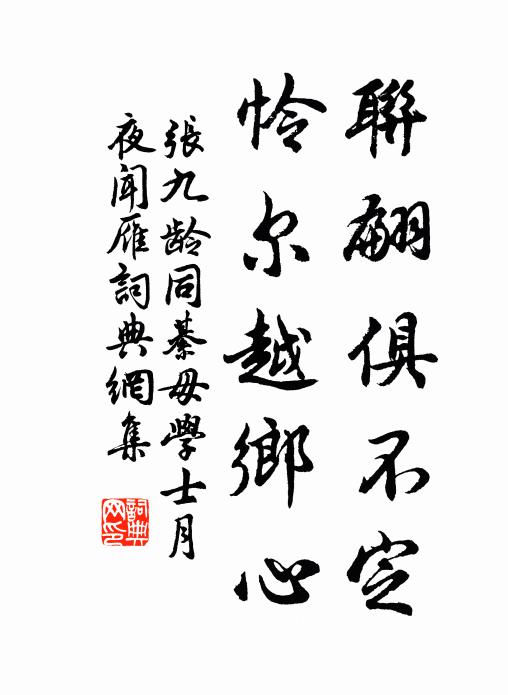 聯翩俱不定
怜尔越鄉心
張九龄同綦毋學士月
夜闻雁詞典網集
詞典
网印